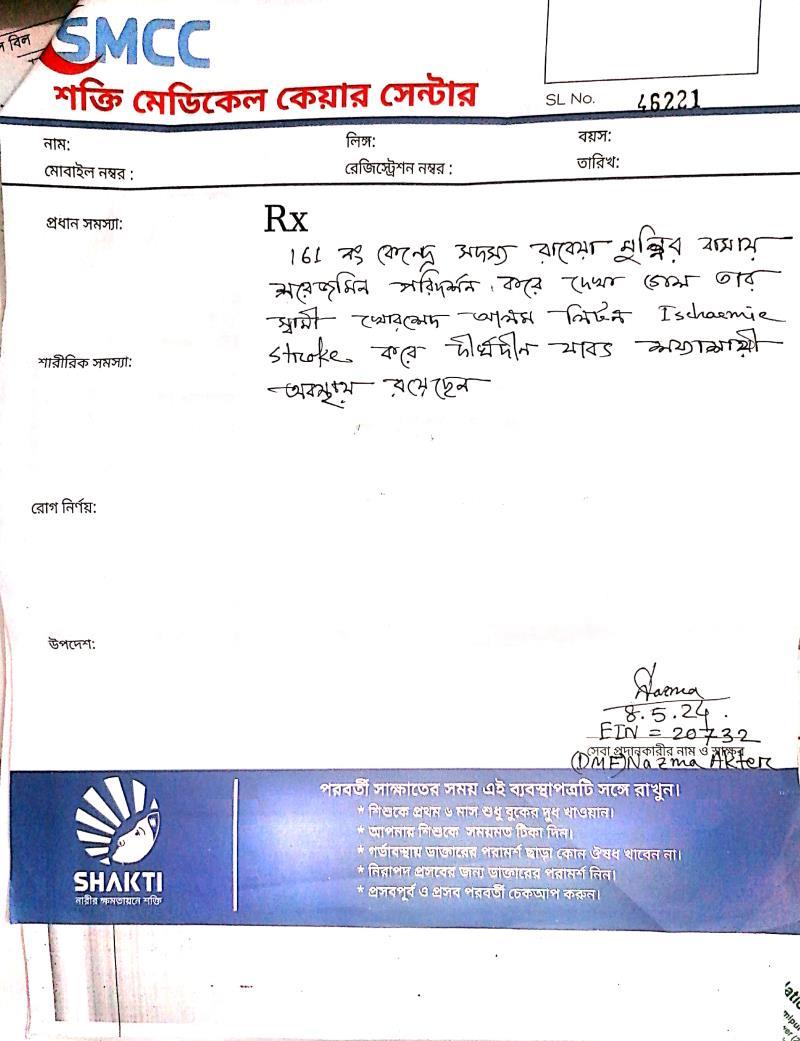 বিল
SMCC
শক্তি মেডিকেল কেয়ার সেন্টার
SL No. 46221
নাম: লিঙ্গ: বয়স:
মোবাইল নম্বর : রেজিস্ট্রেশন নম্বর : তারিখ:
প্রধান সমস্যা:
Rx
161 নং কেন্দ্রে সদস্য রাবেয়া মুন্নির বাসায়
সরেজমিন পরিদর্শন করে দেখা গেল তার
স্বামী খোরশেদ আলম লিটন Ischaemic
stroke করে দীর্ঘদীন যাবৎ শয্যাশায়ী
অবস্থায় রয়েছেন
শারীরিক সমস্যা:
রোগ নির্ণয়:
উপদেশ:
Nazma
8.5.24.
EIN = 20732
সেবা প্রদানকারীর নাম ও স্বাক্ষর
(DMF) Nazma Akter
পরবর্তী সাক্ষাতের সময় এই ব্যবস্থাপত্রটি সঙ্গে রাখুন।
* শিশুকে প্রথম ৬ মাস শুধু বুকের দুধ খাওয়ান।
* আপনার শিশুকে সময়মত টিকা দিন।
* গর্ভাবস্থায় ডাক্তারের পরামর্শ ছাড়া কোন ঔষধ খাবেন না।
* নিরাপদ প্রসবের জন্য ডাক্তারের পরামর্শ নিন।
* প্রসবপূর্ব ও প্রসব পরবর্তী চেকআপ করুন।
SHAKTI
নারীর ক্ষমতায়নে শক্তি